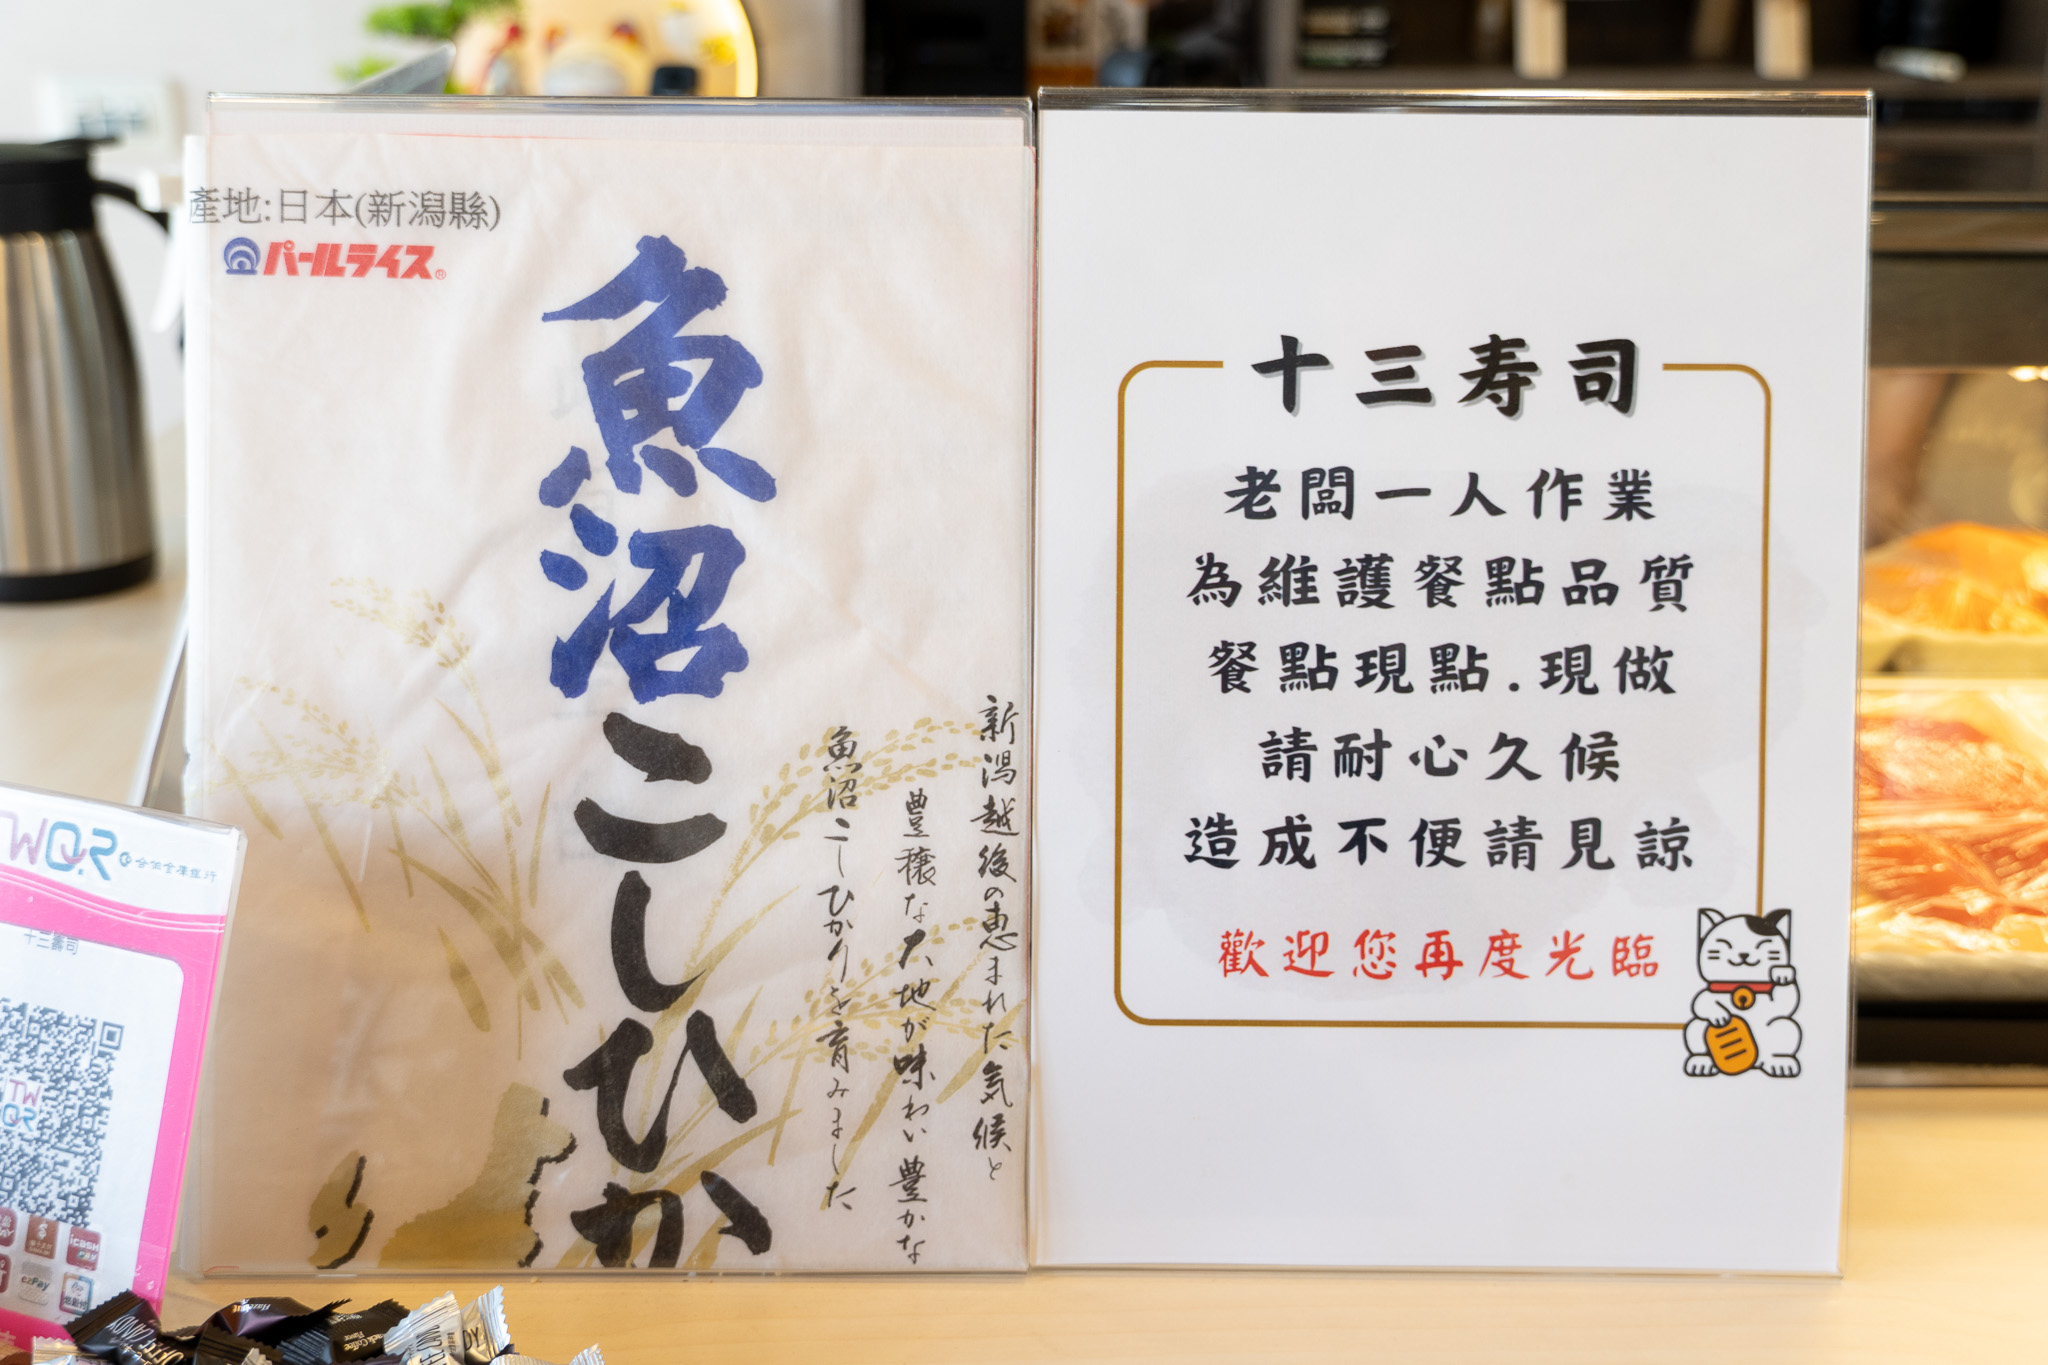 產地:日本(新潟縣)
パールライス®
魚沼こしひか
新潟越後の恵まれた気候と
豊穣な大地が味わい豊かな
魚沼こしひかりを育みました
十三寿司
老闆一人作業
為維護餐點品質
餐點現點.現做
請耐心久候
造成不便請見諒
歡迎您再度光臨
TWQR 合作金庫銀行
十三壽司
TW
QR
icash
Pay
ezPay